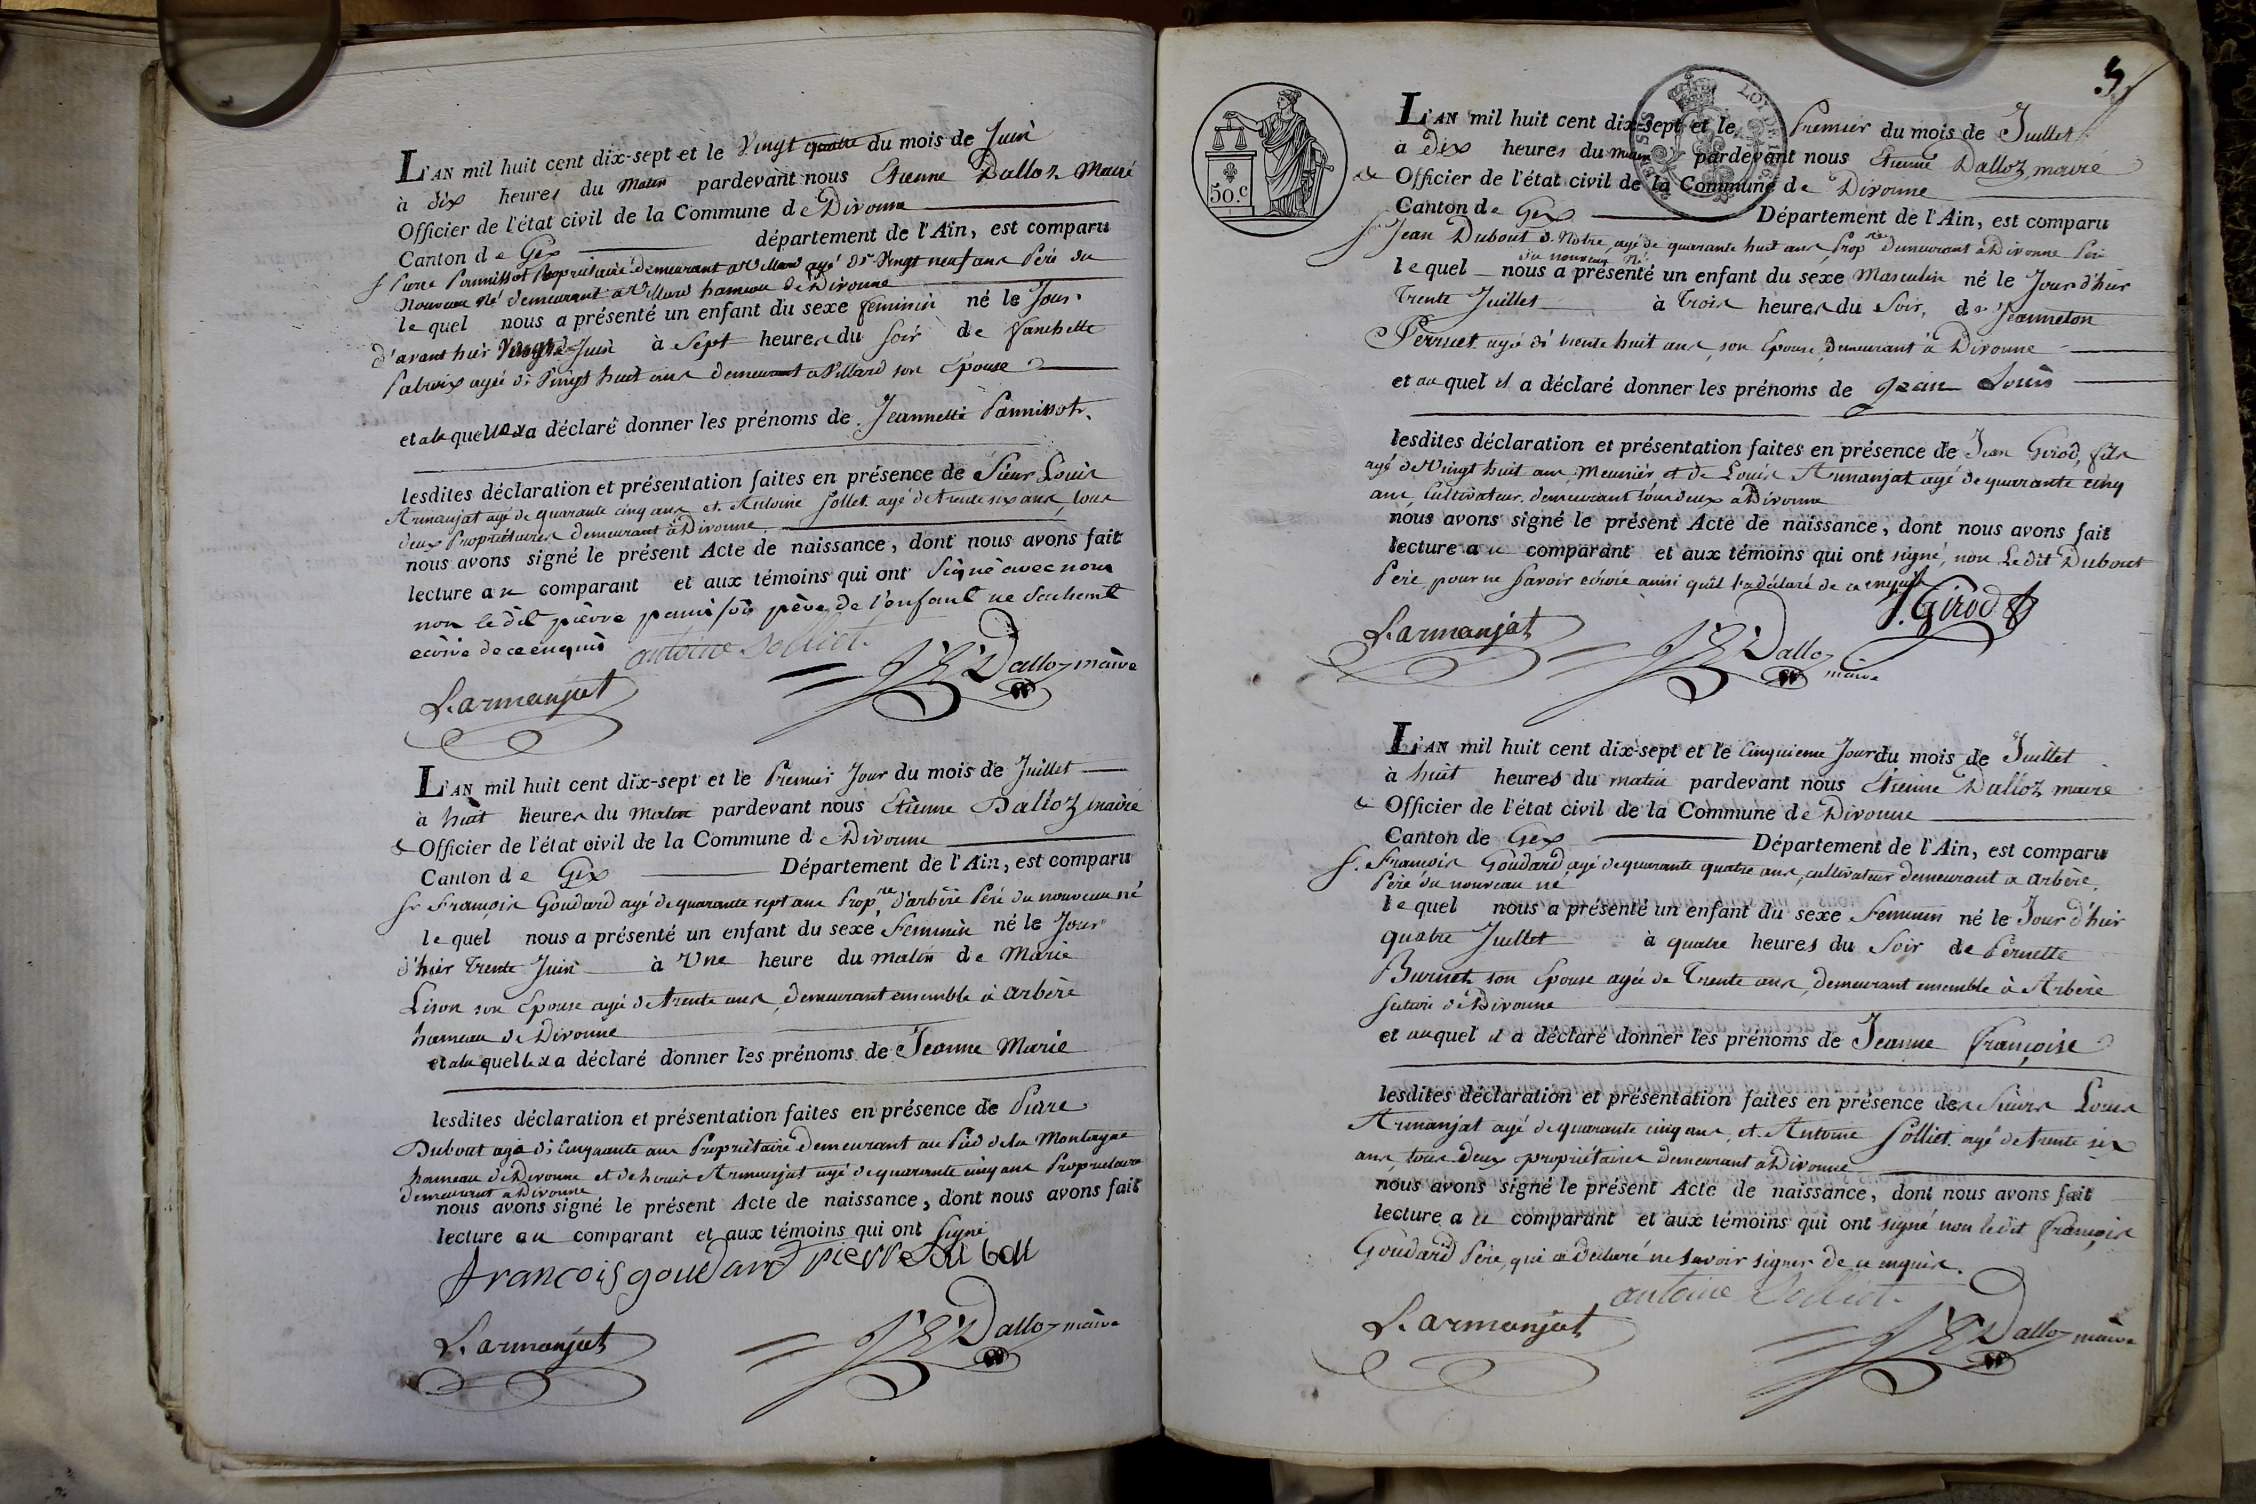 L'AN mil huit cent dix-sept et le Vingt quatre du mois de Juin
à dix heures du matin pardevant nous Etienne Dalloz Maire
Officier de l'état civil de la Commune de Divonne
Canton de Gex département de l'Ain, est comparu
Sr Pierre Pannissot Propriétaire demeurant à Villard agé de Vingt neuf ans Père du
Nouveau Né demeurant à Villard hameau de Divonne
lequel nous a présenté un enfant du sexe feminin né le Jour
d'avant hier Juin à Sept heures du soir de Fanchette
agée de Vingt huit ans demeurant à Villard son Epouse
et à laquelle il a déclaré donner les prénoms de Jeannette Pannissot.
lesdites déclaration et présentation faites en présence de Sieur Louis
Armanjat agé de quarante cinq ans et Antoine Solliet agé de trente six ans, tous
deux Propriétaires demeurant à Divonne
nous avons signé le présent Acte de naissance, dont nous avons fait
lecture au comparant et aux témoins qui ont Signé avec nous
non le dit pierre panissot père de l'enfant ne Sachant
écrire de ce enquis antoine Solliet.
L. armanjat Dalloz maire
L'AN mil huit cent dix-sept et le Premier Jour du mois de Juillet
à huit heures du Matin pardevant nous Etienne Dalloz maire
& Officier de l'état civil de la Commune de Divonne
Canton de Gex Département de l'Ain, est comparu
Sr François Goudard agé de quarante sept ans Propre d'arbère Père du nouveau né
lequel nous a présenté un enfant du sexe Feminin né le Jour
d'hier trente Juin à Une heure du matin de Marie
Lison son Epouse agée de trente ans, demeurant ensemble à Arbère
hameau de Divonne
et à laquelle il a déclaré donner les prénoms de Jeanne Marie
lesdites déclaration et présentation faites en présence de Pierre
Dubout agé de Cinquante ans Propriétaire demeurant au Pied de la Montagne
hameau de Divonne et de Louis Armanjat agé de quarante cinq ans Propriétaire
demeurant à Divonne
nous avons signé le présent Acte de naissance, dont nous avons fait
lecture au comparant et aux témoins qui ont Signé
francois goudard pierre dubou
L. armanjat Dalloz maire
5
50.c
LOI DE 1816
L'AN mil huit cent dix-sept et le Premier du mois de Juillet
à dix heures du matin pardevant nous Etienne Dalloz, maire
& Officier de l'état civil de la Commune de Divonne
Canton de Gex Département de l'Ain, est comparu
Sr Jean Dubout agé de quarante huit ans, Propre demeurant à Divonne Père
du nouveau Né
lequel nous a présenté un enfant du sexe Masculin né le Jour d'hier
trente Juillet à trois heures du Soir, de Jeanneton
Perruet agée de trente huit ans, son Epouse, demeurant à Divonne
et auquel il a déclaré donner les prénoms de Jean Louis
lesdites déclaration et présentation faites en présence de Jean Girod, fils
agé de Vingt huit ans, Meunier et de Louis Armanjat agé de quarante cinq
ans, Cultivateur, demeurant tous deux à Divonne
nous avons signé le présent Acte de naissance, dont nous avons fait
lecture au comparant et aux témoins qui ont signé, non Le dit Dubout
Père, pour ne Savoir écrire ainsi qu'il l'a déclaré de ce enquis
J. Girod
L. armanjat Dalloz
maire
L'AN mil huit cent dix-sept et le Cinquieme Jour du mois de Juillet
à huit heures du matin pardevant nous Etienne Dalloz maire
& Officier de l'état civil de la Commune de Divonne
Canton de Gex Département de l'Ain, est comparu
Sr. François Goudard, agé de quarante quatre ans, cultivateur demeurant à Arbère,
Père du nouveau né
lequel nous a présenté un enfant du sexe Feminin né le Jour d'hier
quatre Juillet à quatre heures du Soir de Pernette
Burnet son Epouse agée de Trente ans, demeurant ensemble à Arbère
de Divonne
et auquel il a déclaré donner les prénoms de Jeanne Françoise
lesdites déclaration et présentation faites en présence des Sieurs Louis
Armanjat agé de quarante cinq ans, et Antoine Solliet agé de trente six
ans, tous deux propriétaires demeurant à Divonne
nous avons signé le présent Acte de naissance, dont nous avons fait
lecture au comparant et aux témoins qui ont signé non ledit François
Goudard Père, qui a déclaré ne Savoir signer de ce enquis.
antoine Solliet.
L. armanjat Dalloz maire